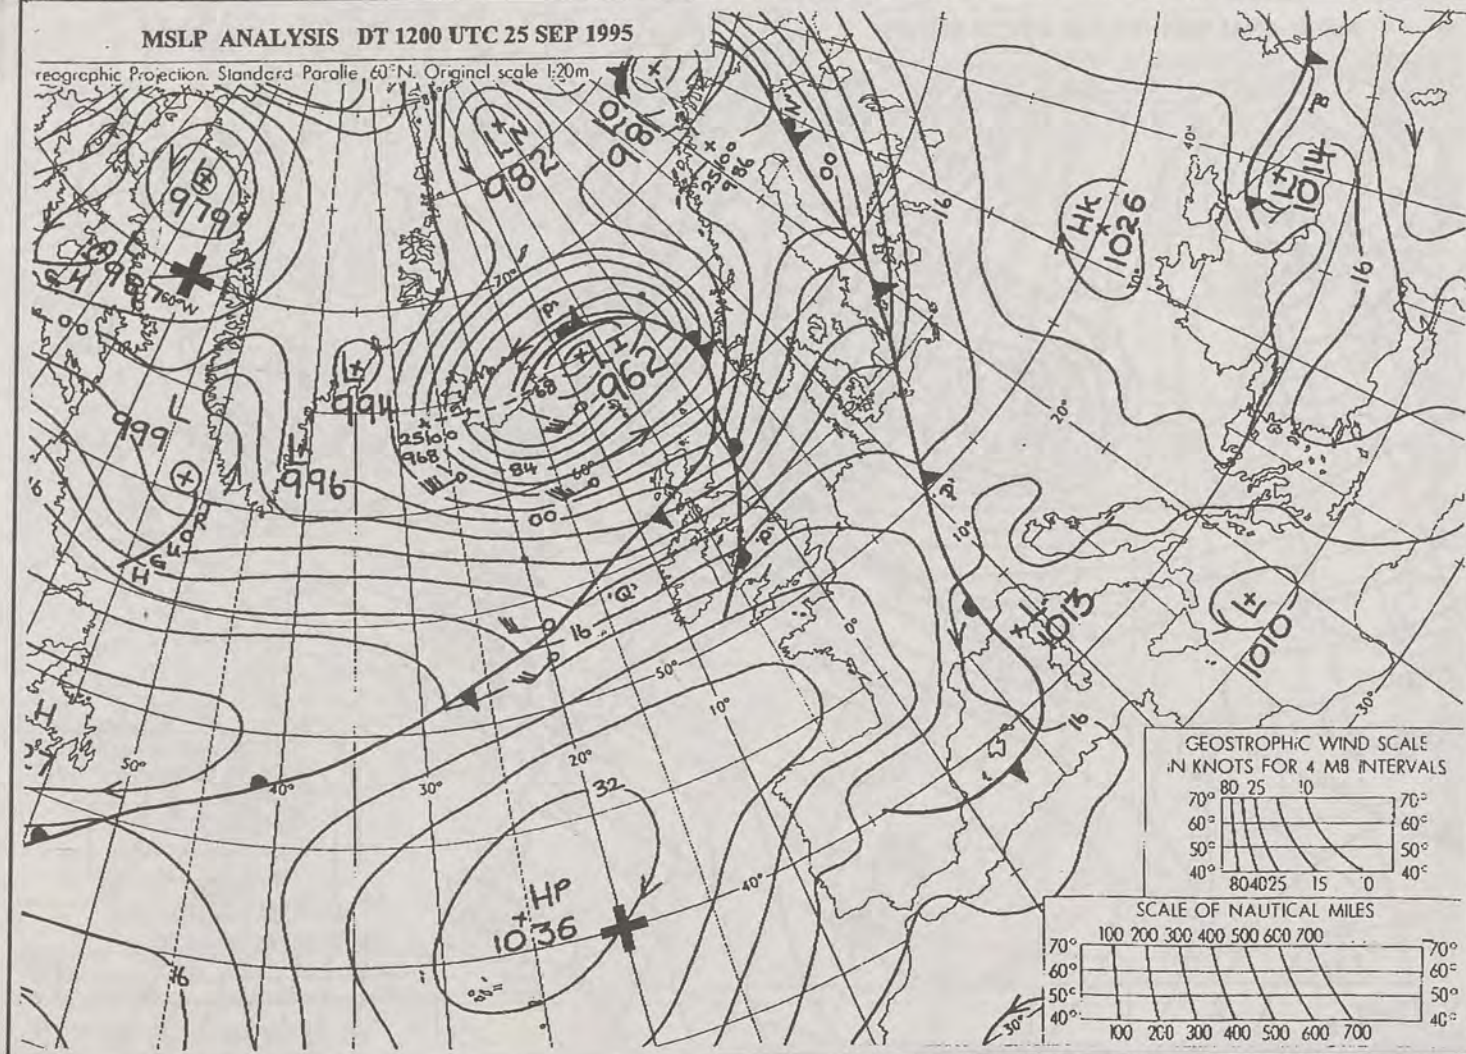 MSLP ANALYSIS DT 1200 UTC 25 SEP 1995
reogrcphic Projection. Standard Paralle 60°N. Original scale 1:20m
L
979
987
60°W
00
L N
982
9810
25100
986
00
16
Hk
1026
30°
40°
'B'
L
1014
16
70°
'P'
L I
962
68
L
994
25100
968
84
60°
00
L
999
L
996
R
G
H
'Q'
16
'P'
'P'
20°
10°
0°
L
1013
L
1010
30°
H
50°
40°
30°
20°
10°
50°
40°
32
HP
1036
16
16
30°
GEOSTROPHIC WIND SCALE
IN KNOTS FOR 4 MB INTERVALS
80 25 10
70° 70°
60° 60°
50° 50°
40° 40°
80 40 25 15 0
SCALE OF NAUTICAL MILES
100 200 300 400 500 600 700
70° 70°
60° 60°
50° 50°
40° 40°
100 200 300 400 500 600 700